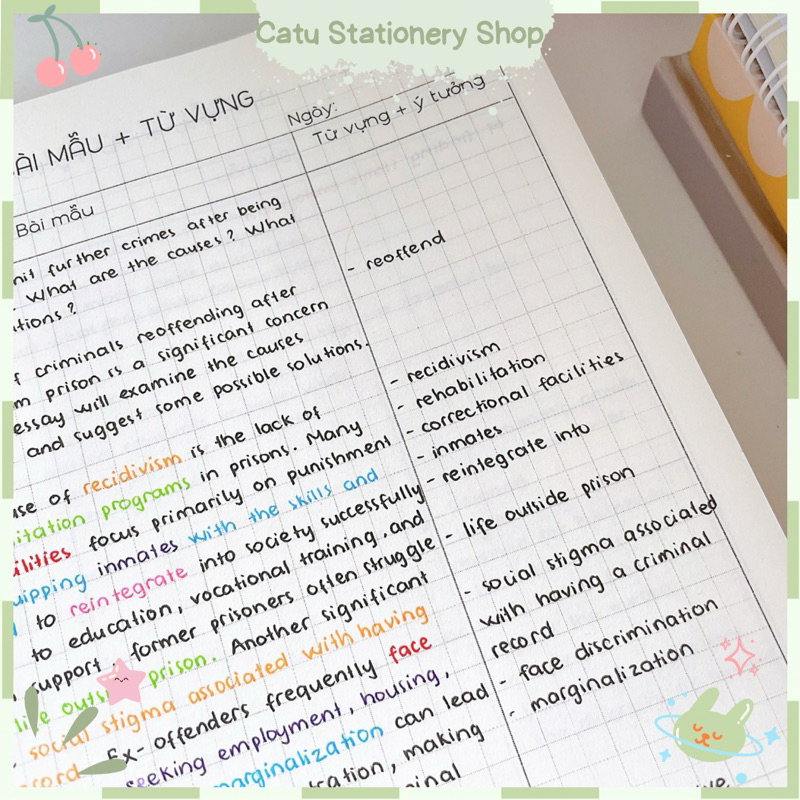 Catu Stationery Shop
BÀI MẪU + TỪ VỰNG
Ngày:
Bài mẫu
Từ vựng + ý tưởng
further crimes after being
What are the causes? What
?
criminals reoffending after
prison is a significant concern
essay will examine the causes
and suggest some possible solutions.
of recidivism is the lack of
programs in prisons. Many
focus primarily on punishment
inmates with the skills and
to reintegrate into society successfully
to education, vocational training, and
support, former prisoners often struggle
life prison. Another significant
social stigma associated with having
Ex-offenders frequently face
seeking employment, housing,
marginalization can lead
making
- reoffend
- recidivism
- rehabilitation
- correctional facilities
- inmates
- reintegrate into
- life outside prison
- social stigma associated
with having a criminal
record
- face discrimination
- marginalization